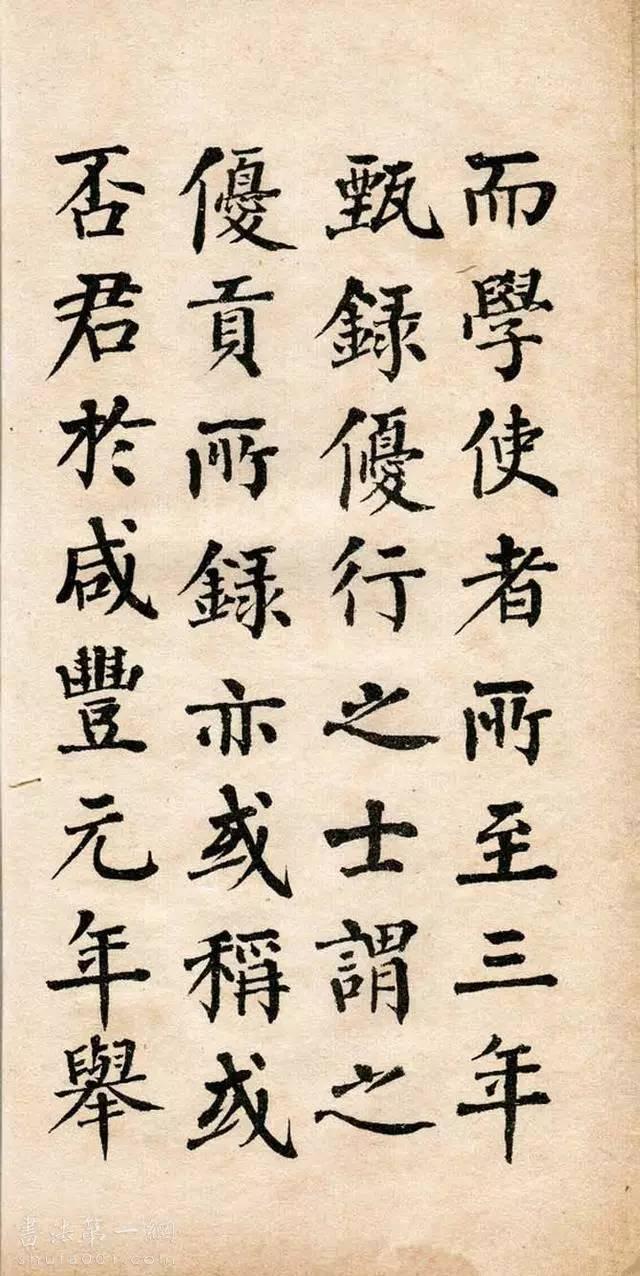 而學使者所至三年
甄録優行之士謂之
優貢所録亦或稱或
否君於咸豐元年舉
書法第一網
shufa001.com